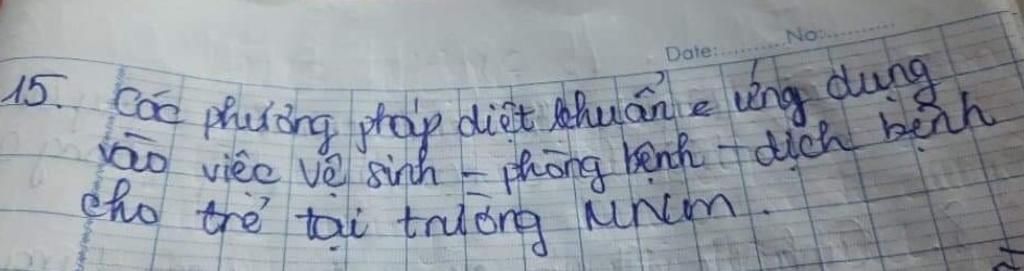 Date:........... No:..............
15. Các phương pháp diệt khuẩn & ứng dụng
vào việc vệ sinh - phòng bệnh - dịch bệnh
cho trẻ tại trường